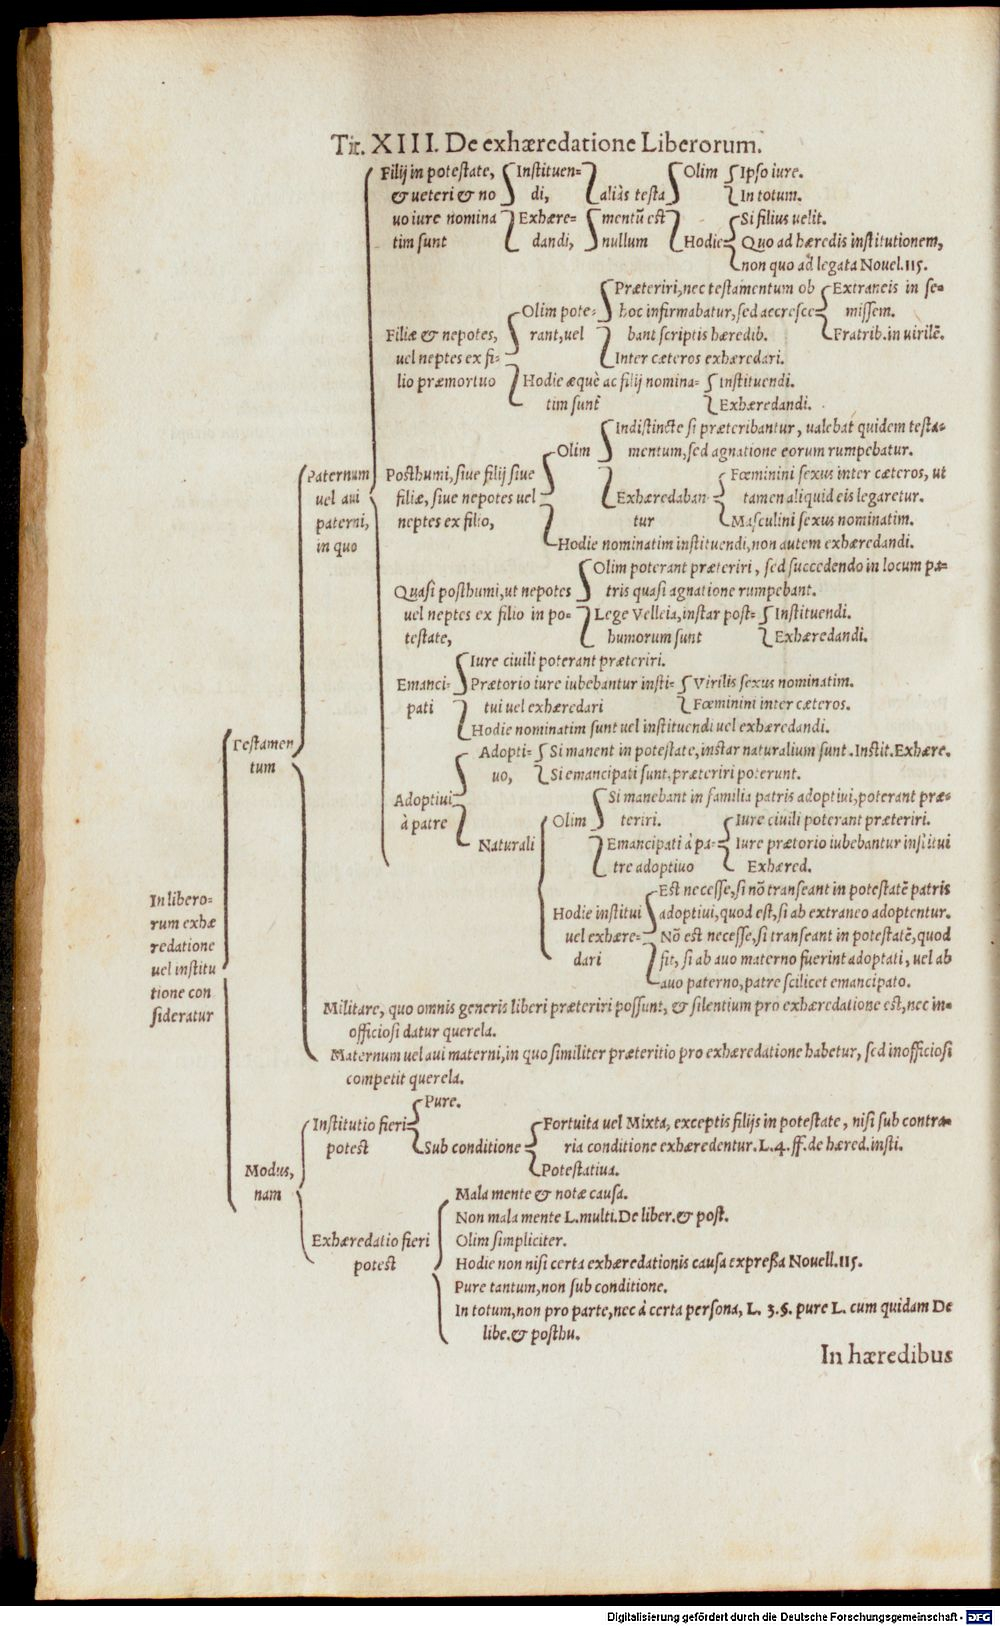 Tit. XIII. De exhæredatione Liberorum.
In libero-
rum exhæ
redatione
uel institu
tione con
sideratur
Testamen
tum
Paternum
uel aui
paterni,
in quo
Filij in potestate,
& ueteri & no
uo iure nomina
tim sunt
Instituen-
di,
Exhære-
dandi,
aliàs testa
mentũ est
nullum
Olim
Ipso iure.
In totum.
Hodie
Si filius uelit.
Quo ad hæredis institutionem,
non quo ad legata Nouel.115.
Filiæ & nepotes,
uel neptes ex fi-
lio præmortuo
Olim pote-
rant, uel
Præteriri, nec testamentum ob
hoc infirmabatur, sed accresce-
bant scriptis hæredib.
Extraneis in se-
missem.
Fratrib. in virilẽ.
Inter cæteros exhæredari.
Hodie æquè ac filij nomina-
tim sunt
Instituendi.
Exhæredandi.
Posthumi, siue filij siue
filiæ, siue nepotes uel
neptes ex filio,
Olim
Indistincte si præteribantur, ualebat quidem testa-
mentum, sed agnatione eorum rumpebatur.
Exhæredaban
tur
Fœminini sexus inter cæteros, ut
tamen aliquid eis legaretur.
Masculini sexus nominatim.
Hodie nominatim instituendi, non autem exhæredandi.
Quasi posthumi, ut nepotes
uel neptes ex filio in po-
testate,
Olim poterant præteriri, sed succedendo in locum pa-
tris quasi agnatione rumpebant.
Lege Velleia, instar post-
humorum sunt
Instituendi.
Exhæredandi.
Emanci-
pati
Iure ciuili poterant præteriri.
Prætorio iure iubebantur insti-
tui uel exhæredari
Virilis sexus nominatim.
Fœminini inter cæteros.
Hodie nominatim sunt uel instituendi uel exhæredandi.
Adoptiui
à patre
Adopti-
uo,
Si manent in potestate, instar naturalium sunt. Instit. Exhære.
Si emancipati sunt, præteriri poterunt.
Naturali
Olim
Si manebant in familia patris adoptiui, poterant præ-
teriri.
Emancipati à pa-
tre adoptiuo
Iure ciuili poterant præteriri.
Iure prætorio iubebantur institui
Exhæred.
Hodie institui
uel exhære-
dari
Est necesse, si nõ transeant in potestatẽ patris
adoptiui, quod est, si ab extraneo adoptentur.
Nõ est necesse, si transeant in potestatẽ, quod
fit, si ab auo materno fuerint adoptati, uel ab
auo paterno, patre scilicet emancipato.
Militare, quo omnis generis liberi præteriri possunt, & silentium pro exhæredatione est, nec in-
officiosi datur querela.
Maternum uel aui materni, in quo similiter præteritio pro exhæredatione habetur, sed inofficiosi
competit querela.
Modus,
nam
Institutio fieri
potest
Pure.
Sub conditione
Fortuita uel Mixta, exceptis filijs in potestate, nisi sub contra-
ria conditione exhæredentur. L.4.ff.de hæred.insti.
Potestatiua.
Exhæredatio fieri
potest
Mala mente & notæ causa.
Non mala mente L.multi.De liber.& post.
Olim simpliciter.
Hodie non nisi certa exhæredationis causa expreßa Nouell.115.
Pure tantum, non sub conditione.
In totum, non pro parte, nec à certa persona, L. 3.§. pure L. cum quidam De
libe.& posthu.
In hæredibus
Digitalisierung gefördert durch die Deutsche Forschungsgemeinschaft - DFG